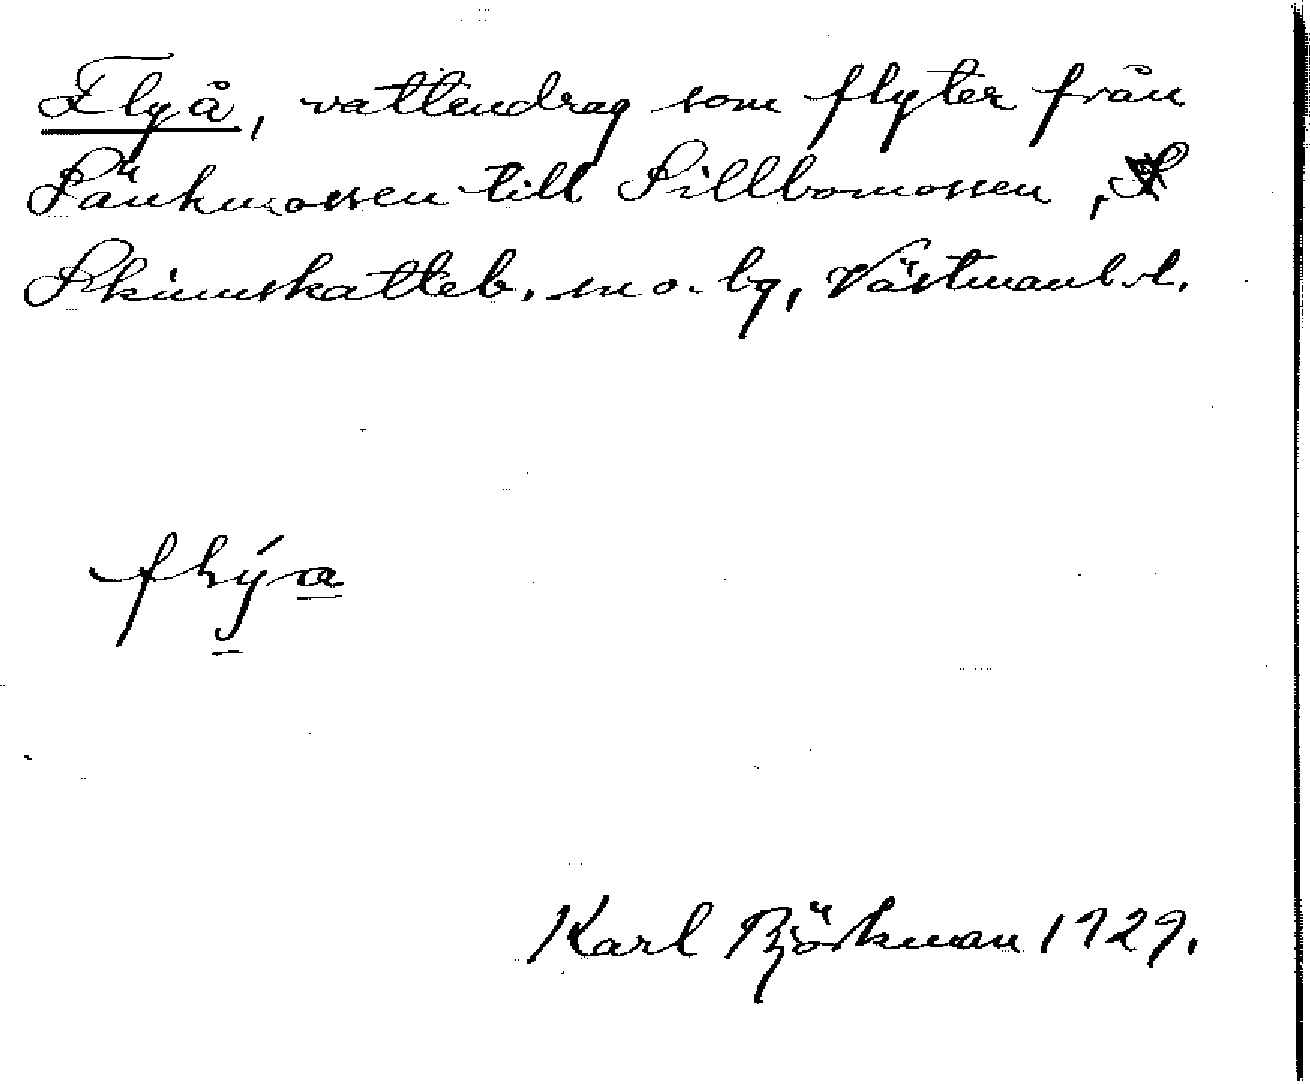 Flyå, vattendrag som flyter från
Sänkmossen till Sillbomossen,
Skinnskatteb. sn o. bg, Västmanl. l.
flýa
Karl Björkman 1929.